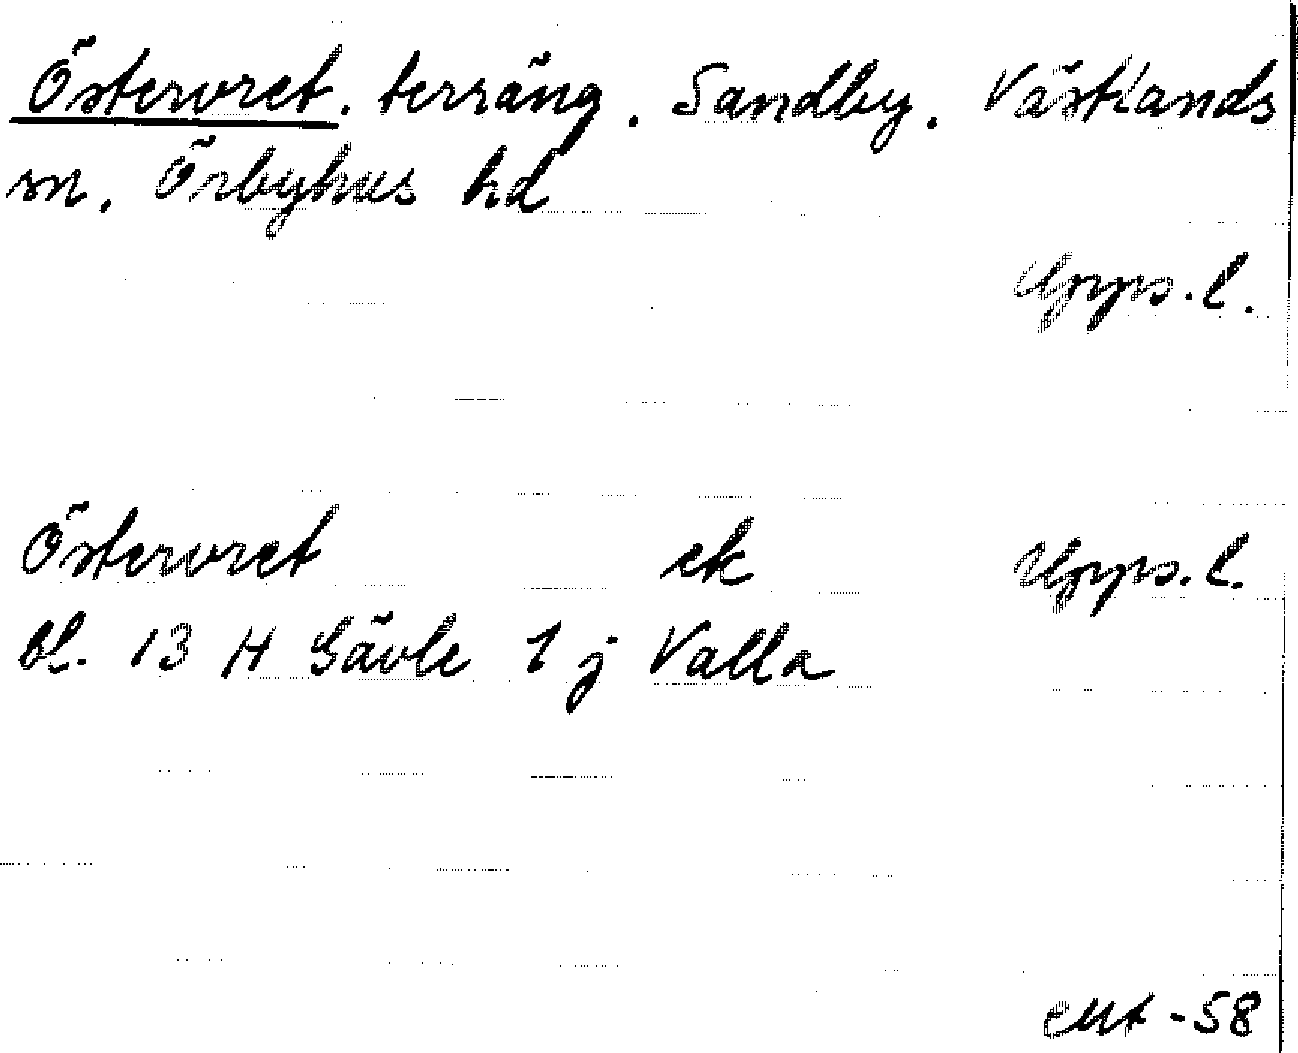 Östervret. terräng. Sandby. Västlands
sn. Örbyhus hd
Upps. l.
Östervret ek Upps. l.
bl. 13 H Gävle 1 j Valla
-58